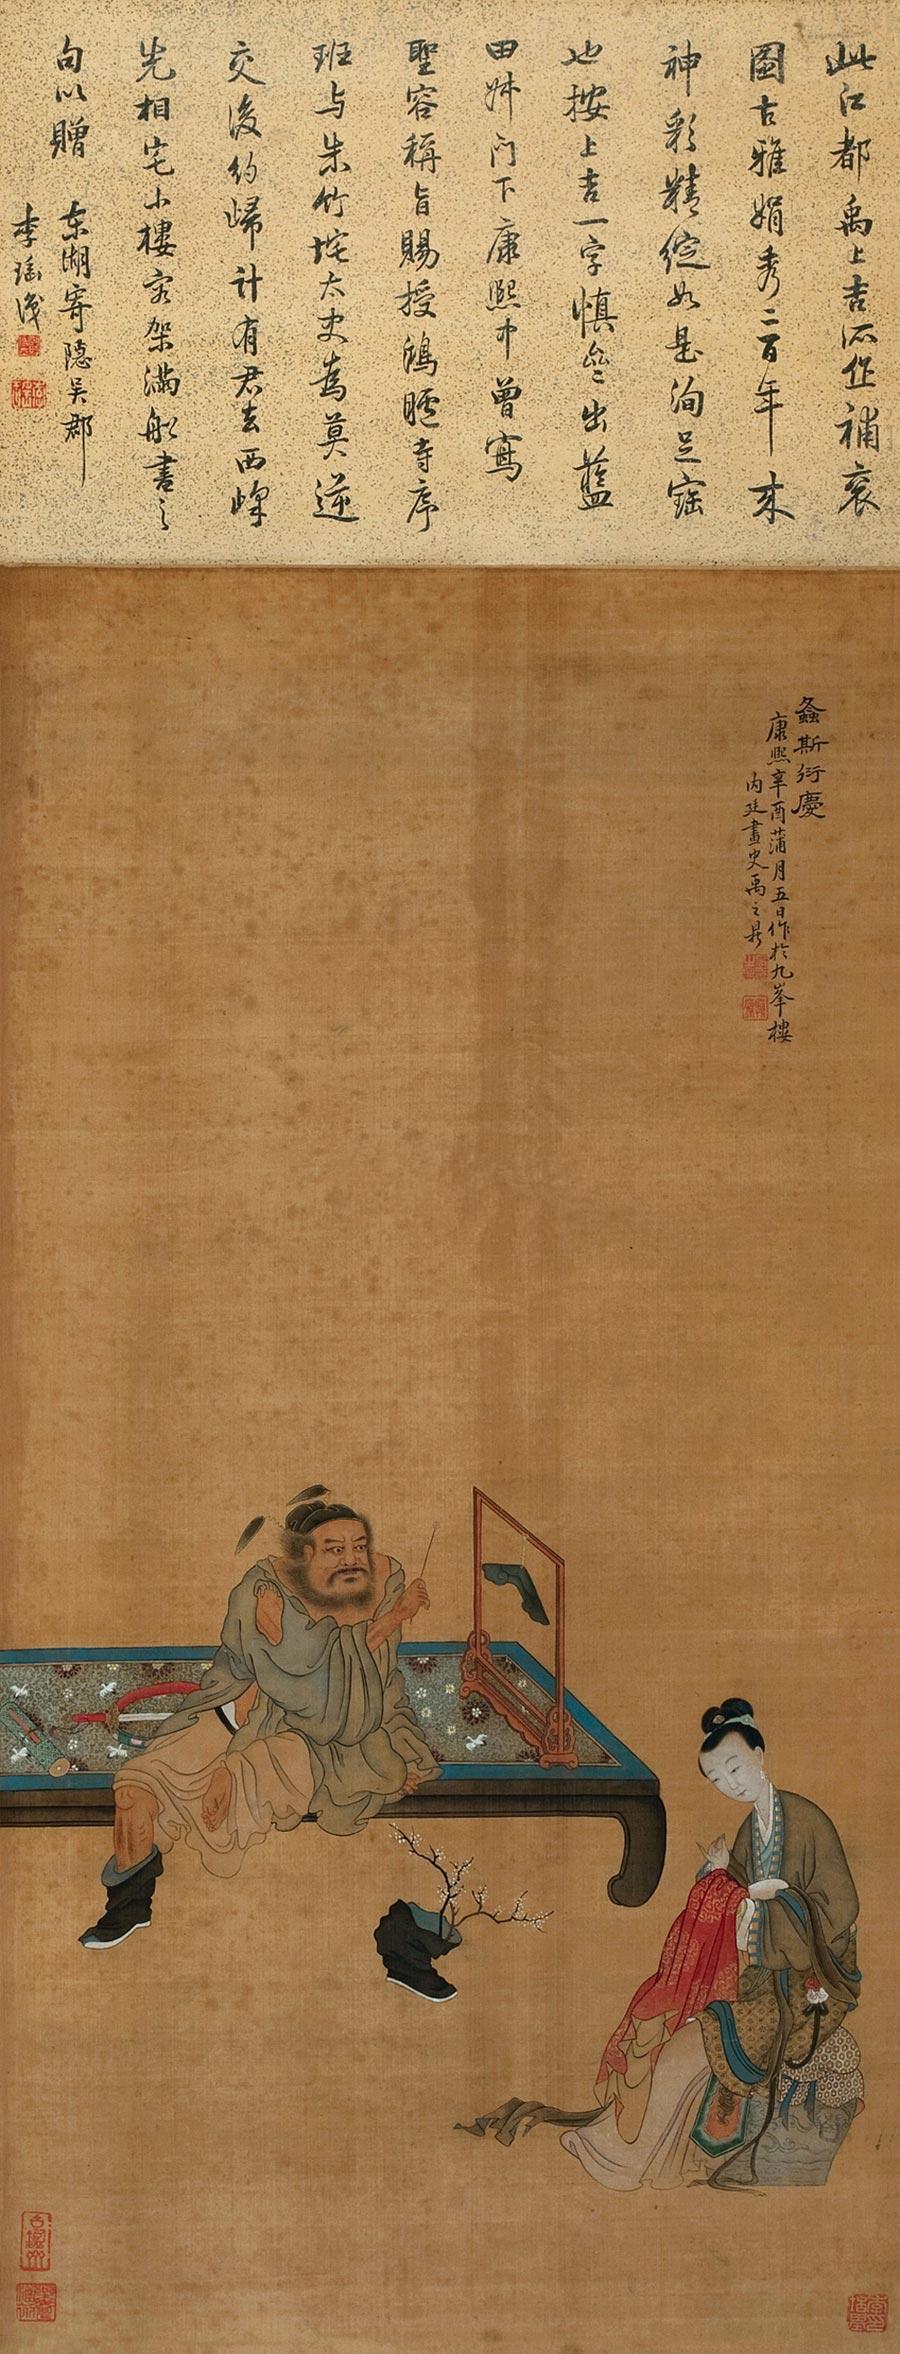 此江都禹上吉所作補袞
圖古雅娟秀二百年來
神彩精綻如是洵足寶
也按上吉一字慎齋出藍
田叔門下康熙中曾寫
聖容稱旨賜授鴻臚寺序
班与朱竹垞太史為莫逆
交後約歸計有君去西峰
先相宅小樓容架滿船書之
句以贈
東湖寄隱吳郡
李瑤識
螽斯衍慶
康熙辛酉蒲月五日作於九峯樓
內廷畫史禹之鼎